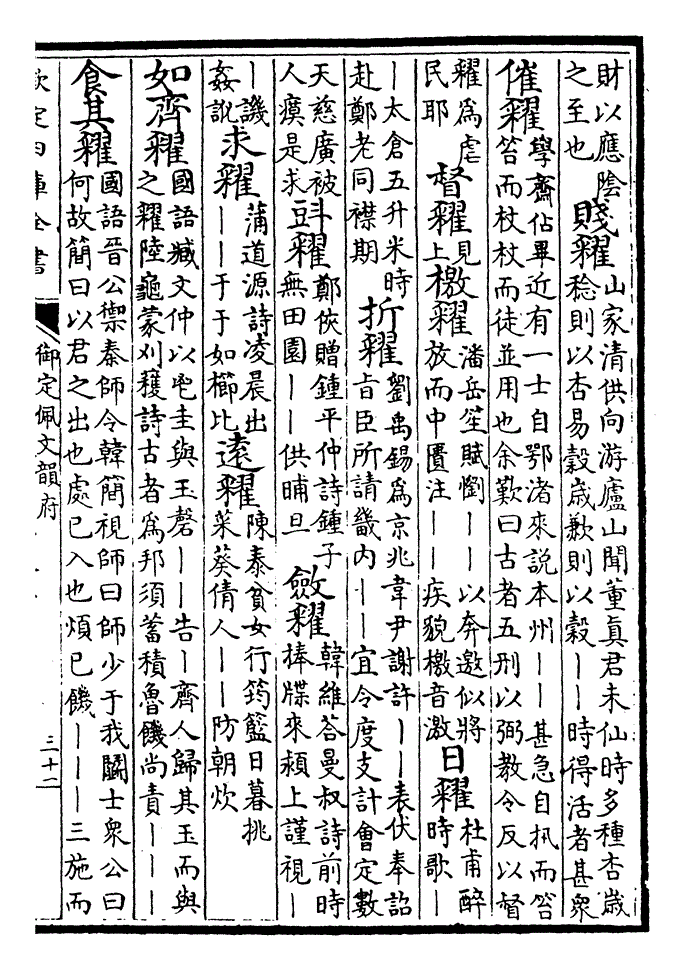 財以應陰
之至也
賤糴
山家清供向游廬山聞董真君未仙時多種杏歲
稔則以杏易穀歲歉則以穀——時得活者甚衆
催糴
學齋佔畢近有一士自鄂渚來説本州——甚急自扺而笞
笞而杖杖而徒並用也余歎曰古者五刑以弼教令反以督
糴為虐
民耶
督糴
見
上
檄糴
潘岳笙賦懰——以奔邀似將
放而中匱注——疾貌檄音激
日糴
杜甫醉
時歌—
—太倉五升米時
赴鄭老同襟期
折糴
劉禹錫為京兆韋尹謝許——表伏奉詔
旨臣所請畿內——宜令度支計會定數
天慈廣被
人瘼是求
㪷糴
鄭俠贈鍾平仲詩鍾子
無田園——供晡旦
斂糴
韓維答曼叔詩前時
捧牒來潁上謹視—
—譏
姦訛
求糴
蒲道源詩凌晨出
——于于如櫛比
遠糴
陳泰貧女行筠籃日暮挑
菜葵倩人——防朝炊
如齊糴
國語臧文仲以鬯圭與玉磬——告—齊人歸其玉而與
之糴陸龜蒙刈穫詩古者為邦須蓄積魯饑尚責———
食其糴
國語晉公禦秦師令韓簡視師曰師少于我鬭士衆公曰
何故簡曰以君之出也處已入也煩已饑———三施而
欽定四庫全書
御定佩文韻府
三十二